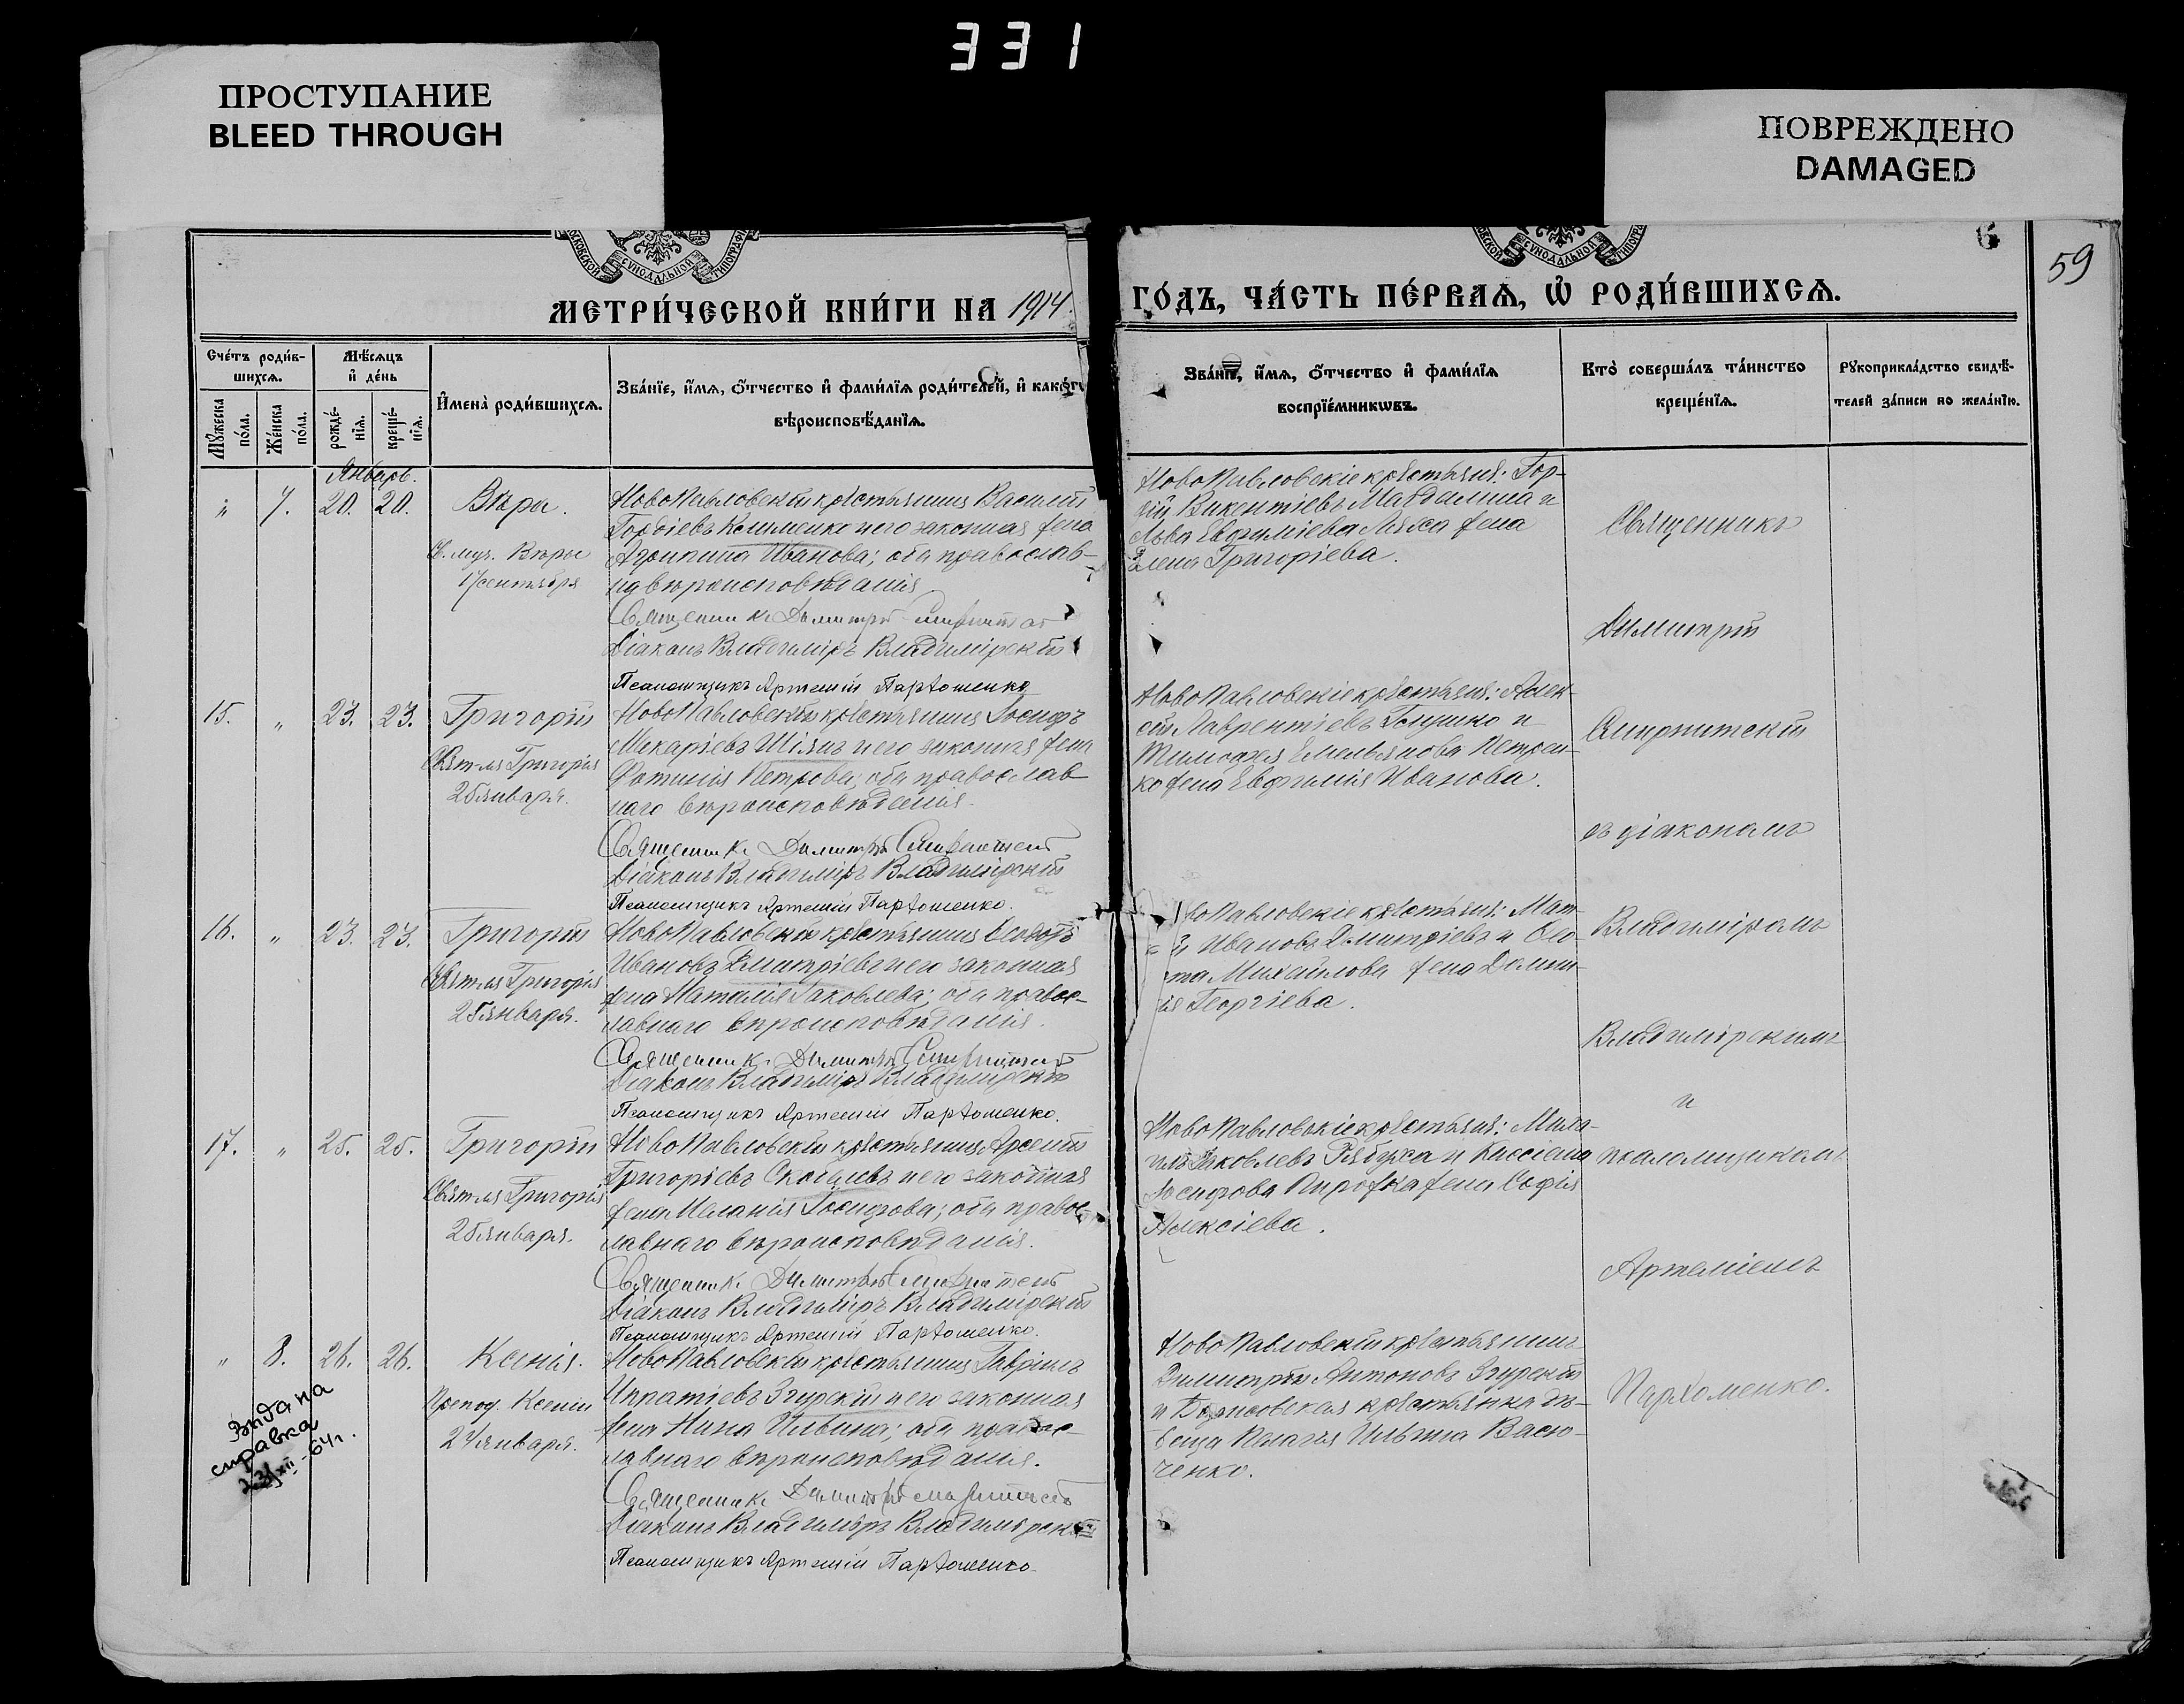 331
ПРОСТУПАНИЕ
BLEED THROUGH
ПОВРЕЖДЕНО
DAMAGED
59
МЕТРИ́ЧЕСКОЙ КНИ́ГИ НА 1914
ГО́ДЪ, ЧА́СТЬ ПЕ́РВАѦ, Ѡ РОДИ́ВШИХСѦ.
Сче́тъ роди́в-
шихсѧ.
Мѣ́сѧцъ
и҆ де́нь
Мꙋ́жеска по́ла.
Же́нска по́ла.
рожде́-
нїѧ.
креще́-
нїѧ.
И҆мена̀ роди́вшихсѧ.
Зва́нїе, и҆́мѧ, ѻ҆́тчество и҆ фами́лїѧ роди́телей, и҆ како́гѡ
вѣроисповѣ́данїѧ.
Зва́нїе, и҆́мѧ, ѻ҆́тчество и҆ фами́лїѧ
воспрїе́мникѡвъ.
Кто̀ соверша́лъ та́инство
креще́нїѧ.
Рꙋкоприкла́дство свидѣ́-
телей за́писи по жела́нїю.
Январь.
" 7. 20. 20. Вѣра.
Св. муч. Вѣры
17 сентября
НовоПавловскій крестьянинъ Василій
Клименко и его законная жена
Агрипина Иванова; оба православ-
вѣроисповѣданія
Священникъ Димитрій
Діаконъ Владиміръ Владимірскій
Псаломщикъ Артемій Пархоменко
НовоПавловскіе крестьяне: Гор-
дій Викентіевъ и
Льва Евфиміева жена
Елена Григорієва.
15. " 23. 23. Григорій
Свят-ля Григорія
25 января.
НовоПавловскій крестьянинъ Іосифъ
Макаріевъ и его законная жена
Фотинія Петрова; оба православ-
наго вѣроисповѣданія.
Священникъ Димитрій
Діаконъ Владиміръ Владимірскій
Псаломщикъ Артемій Пархоменко.
НовоПавловскіе крестьяне: Алек-
сій Лаврентіевъ и
Тимофея Емельянова Петрен-
ко жена Евфимія Иванова.
16. " 23. 23. Григорій
Свят-ля Григорія
25 января.
НовоПавловскій крестьянинъ Ѳеодоръ
Ивановъ Дмитріевъ и его законная
жена Наталія Іаковлева; оба правос-
лавнаго вѣроисповѣданія.
Священникъ Димитрій
Діаконъ Владиміръ Владимірскій
Псаломщикъ Артемій Пархоменко.
воПавловскіе крестьяне: Мат-
й Ивановъ Дмитріевъ и
Михайлова жена
ія Георгіева.
17. " 25. 25. Григорій
Свят-ля Григорія
25 января.
НовоПавловскій крестьянинъ Арсеній
Григоріевъ и его законная
жена Меланія Іосифова; оба правос-
лавнаго вѣроисповѣданія.
Священникъ Димитрій
Діаконъ Владиміръ Владимірскій
Псаломщикъ Артемій Пархоменко.
НовоПавловскіе крестьяне: Миха-
илъ Іаковлевъ Рябуха и Кассіана
Іосифова Пирожка жена Софія
Алексіева.
" 8. 26. 26. Ксенія.
Препод. Ксеніи
24 января.
НовоПавловскій крестьянинъ Гавріилъ
Ипатіевъ Згурскій и его законная
жена Ильина; оба правос-
лавнаго вѣроисповѣданія.
Священникъ Димитрій
Діаконъ Владиміръ Владимірскій
Псаломщикъ Артемій Пархоменко
НовоПавловскій крестьянинъ
Димитрій Антоновъ Згурскій
и Борисовская крестьянка дѣ-
вица Пелагія Ильина Васю-
ченко.
Видана
справка
-64г.
Священникъ
Димитрій
съ діакономъ
Владиміромъ
Владимірскимъ
и
псаломщикомъ
Артеміемъ
Пархоменко.